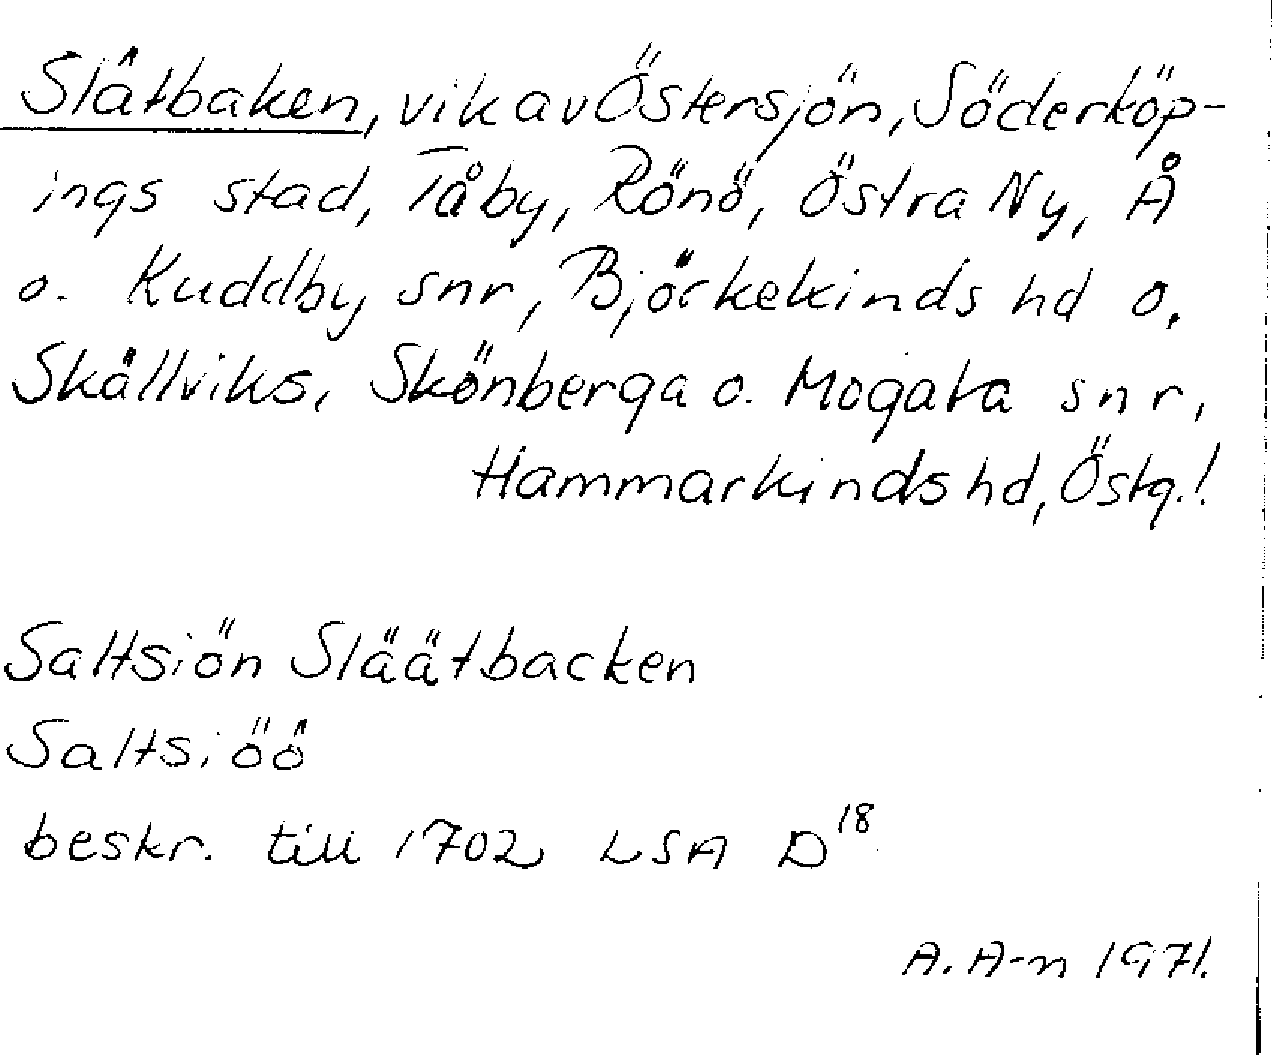 Slätbaken, vik av Östersjön, Söderköp-
ings stad, Tåby, Rönö, Östra Ny, Å
o. Kuddby snr, Björkekinds hd o.
Skällviks, Skönberga o. Mogata snr,
Hammarkinds hd, Östg.!
Saltsiön Släätbacken
Saltsiöö
beskr. till 1702 LSA D 18
A. A-n 1971.